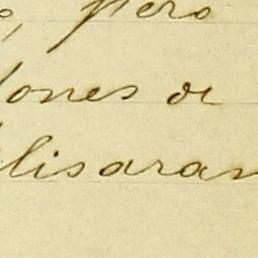 , pero
ones de
lisaran